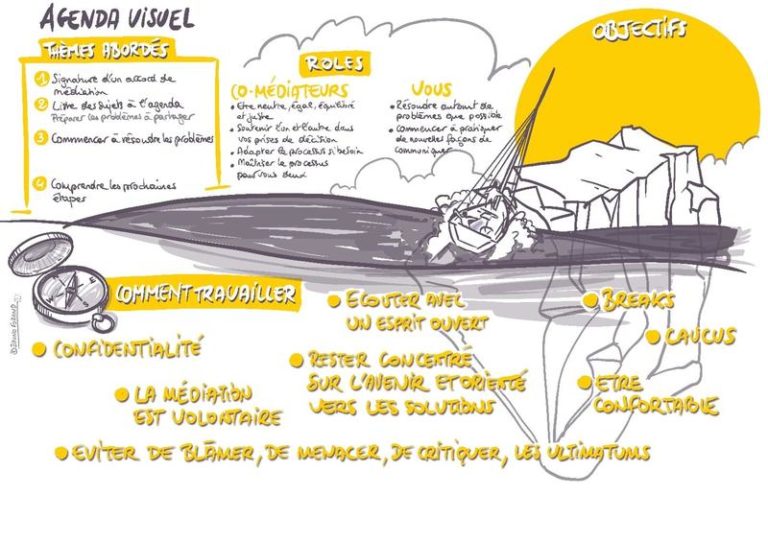 AGENDA VISUEL
THÈMES ABORDÉS
1 Signature d'un accord de
médiation
2 Liste des sujets à l'agenda
Préparer les problèmes à partager
3 Commencer à résoudre les problèmes
4 Comprendre les prochaines
étapes
ROLES
CO-MÉDIATEURS
• Etre neutre, égal, équilibré
et juste
• Soutenir l'un et l'autre dans
vos prises de décision
• Adapter le processus si besoin
• Maîtriser le processus
pour vous deux
VOUS
• Résoudre autant de
problèmes que possible
• Commencer à pratiquer
de nouvelles façons de
communiquer
OBJECTIFS
COMMENT TRAVAILLER
• CONFIDENTIALITÉ
• LA MÉDIATION
EST VOLONTAIRE
• ECOUTER AVEC
UN ESPRIT OUVERT
• RESTER CONCENTRÉ
SUR L'AVENIR ET ORIENTÉ
VERS LES SOLUTIONS
• BREAKS
• CAUCUS
• ETRE
CONFORTABLE
• EVITER DE BLÂMER, DE MENACER, DE CRITIQUER, LES ULTIMATUMS